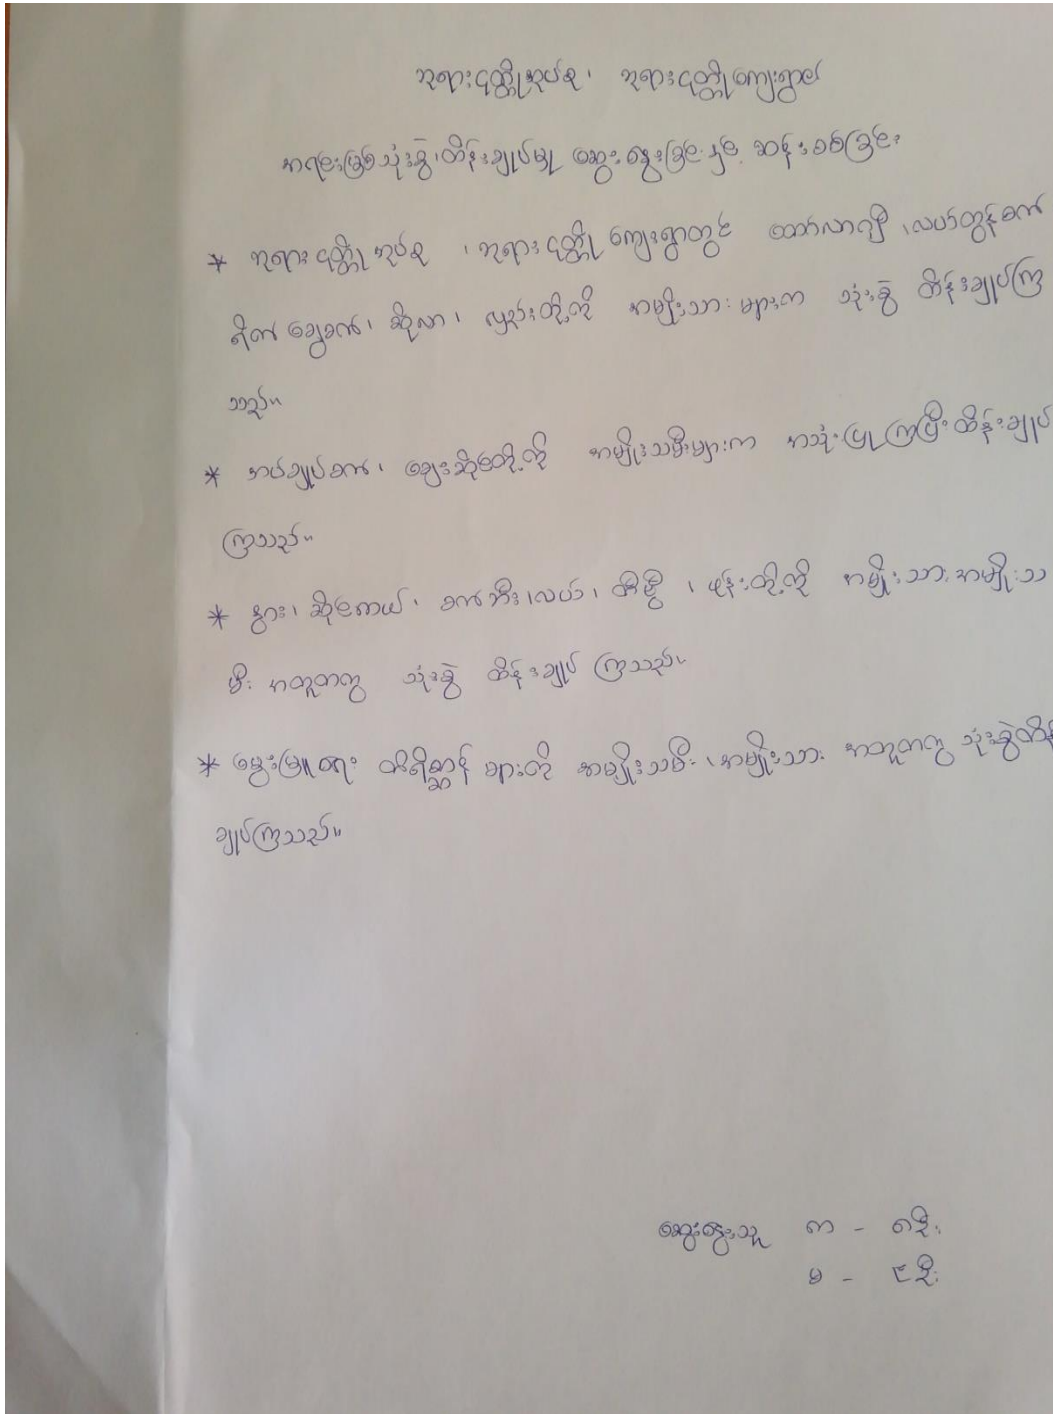 ဘုရားငုတ္တိုအုပ်စု၊ ဘုရားငုတ္တိုကျေးရွာ၏
အရင်းမြစ်သုံးစွဲ၊ထိန်းချုပ်မှု ဆွေးနွေးခြင်းနှင့် ဆန်းစစ်ခြင်း
* ဘုရားငုတ္တိုအုပ်စု ၊ ဘုရားငုတ္တို ကျေးရွာတွင် ထော်လာဂျီ ၊လယ်ထွန်စက်
ရိတ်ခြွေစက်၊ ဆိုလာ၊ လှည်းတို့ကို အမျိုးသားများက သုံးစွဲ ထိန်းချုပ်ကြ
သည်။
* အပ်ချုပ်စက်၊ ဈေးဆိုင်တို့ကို အမျိုးသမီးများက အသုံးပြုကြပြီးထိန်းချုပ်
ကြသည်။
* နွား၊ ဆိုင်ကယ်၊ စက်ဘီး၊လယ်၊ တီဗွီ ၊ ဖုန်းတို့ကို အမျိုးသား အမျိုးသ
မီး အတူတကွ သုံးစွဲ ထိန်းချုပ် ကြသည်။
* မွေးမြူရေး တိရိစ္ဆာန် များကို အမျိုးသမီး ၊အမျိုးသား အတူတကွ သုံးစွဲထိန်း
ချုပ်ကြသည်။
ဆွေးနွေးသူ က - ၈ဦး
မ - ၉ဦး